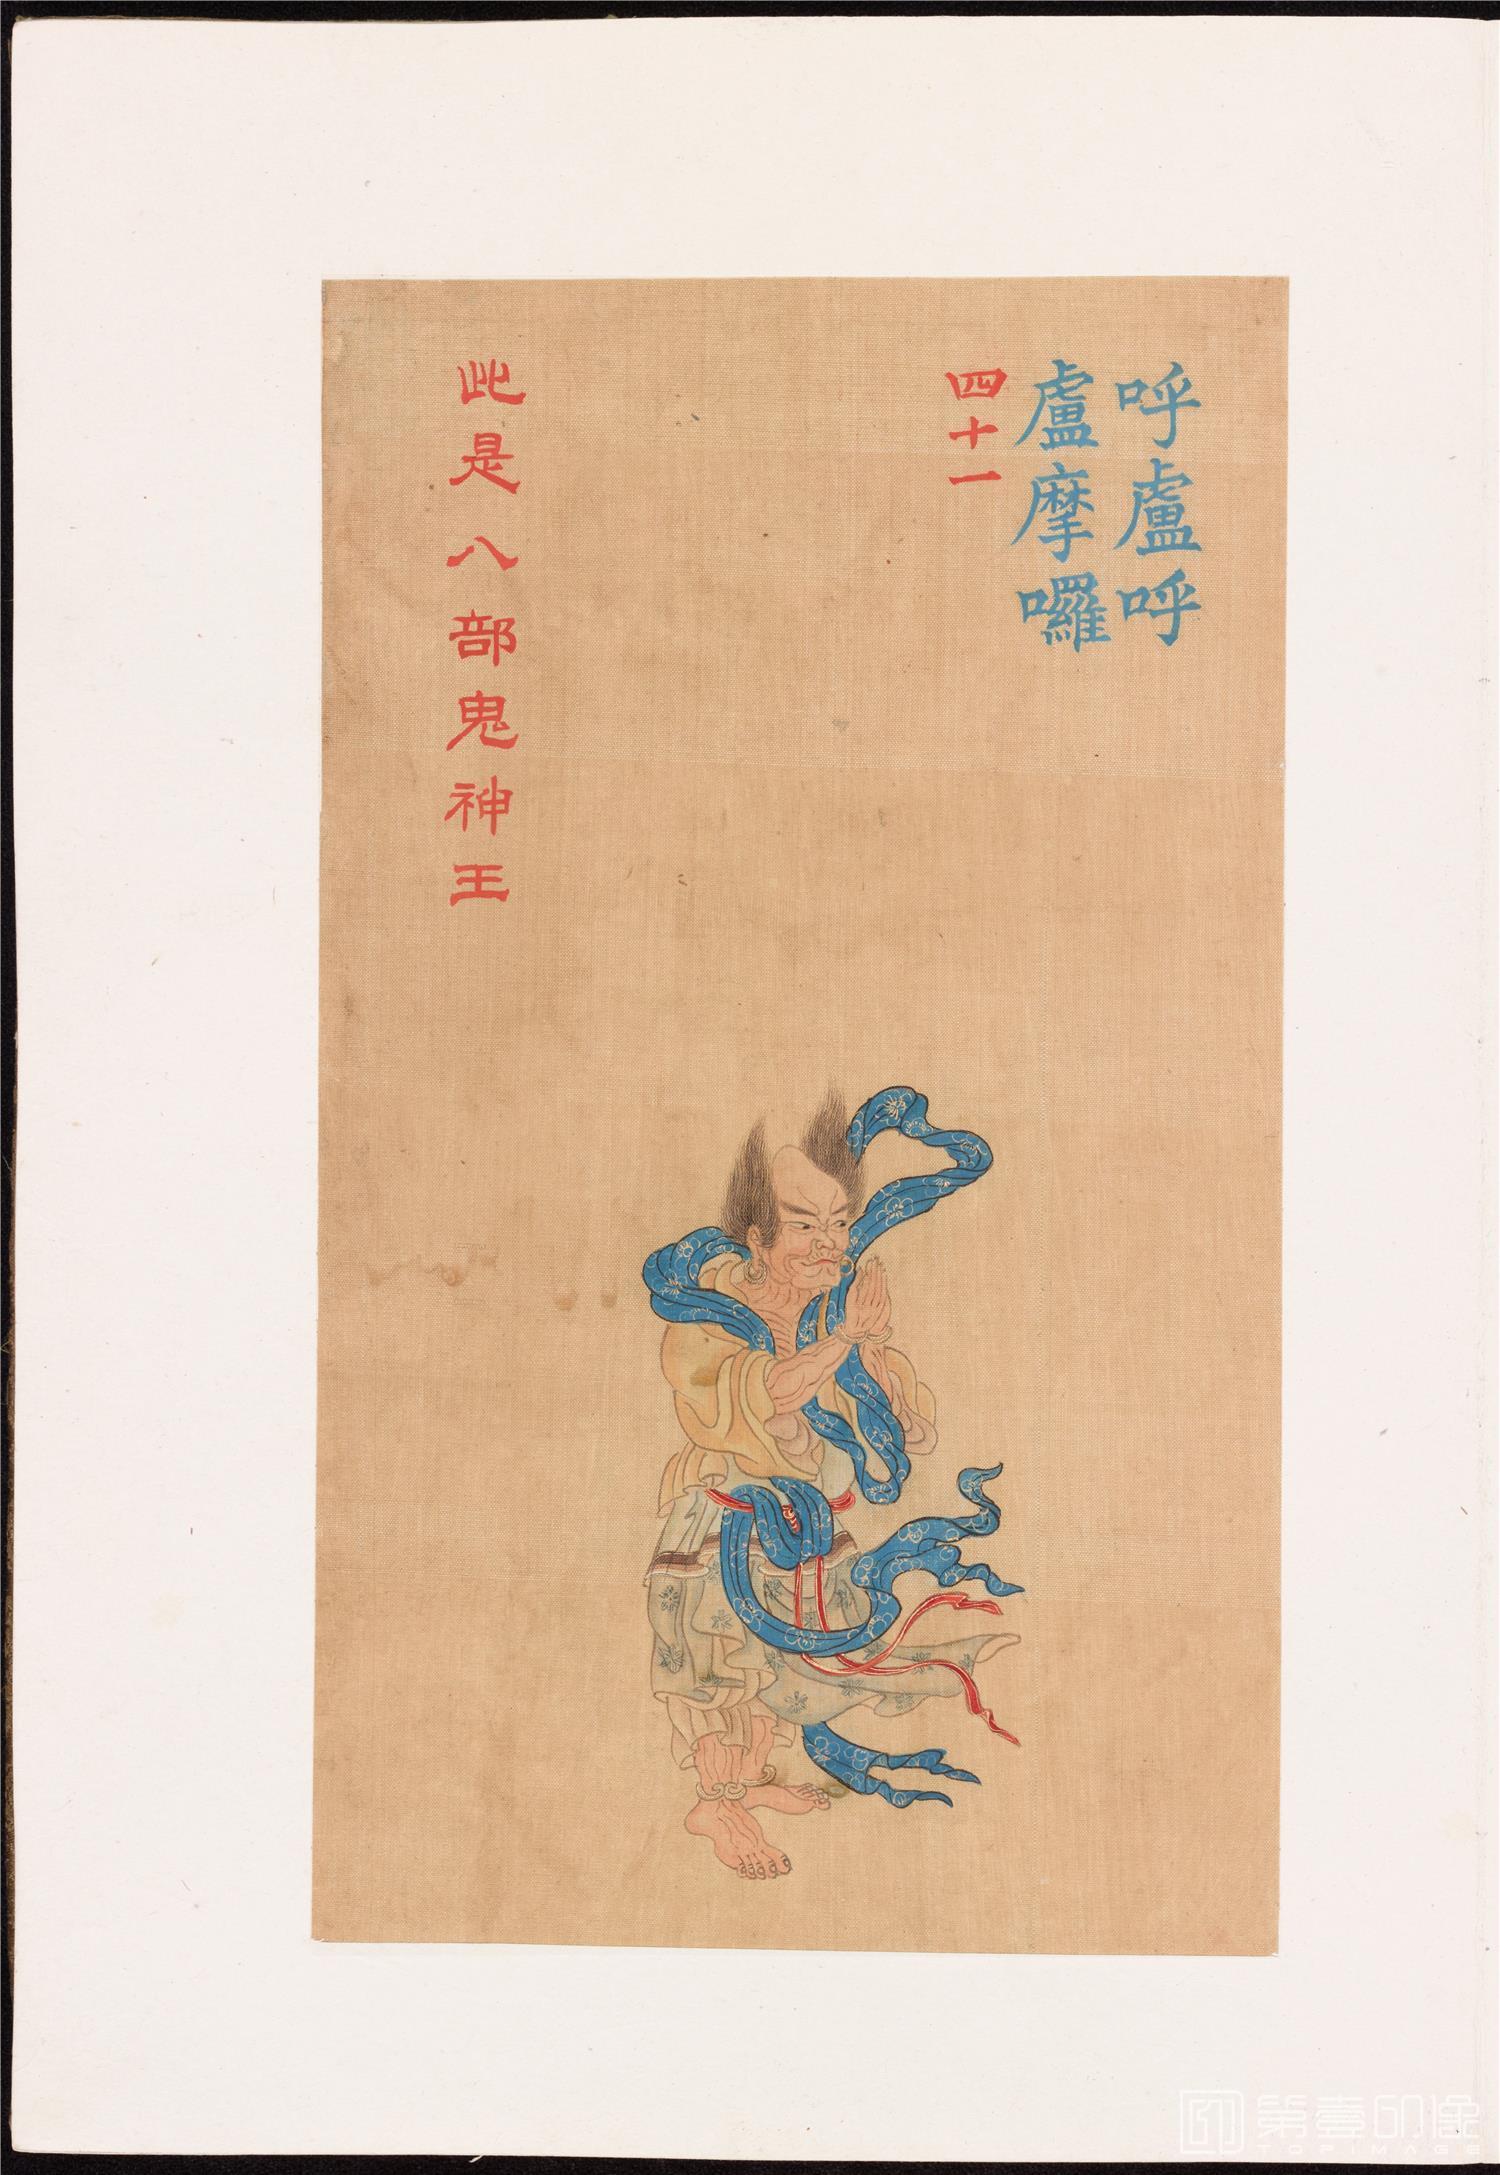 呼盧呼
盧摩囉
四十一
此是八部鬼神王
第壹印像
TOPIMAGE